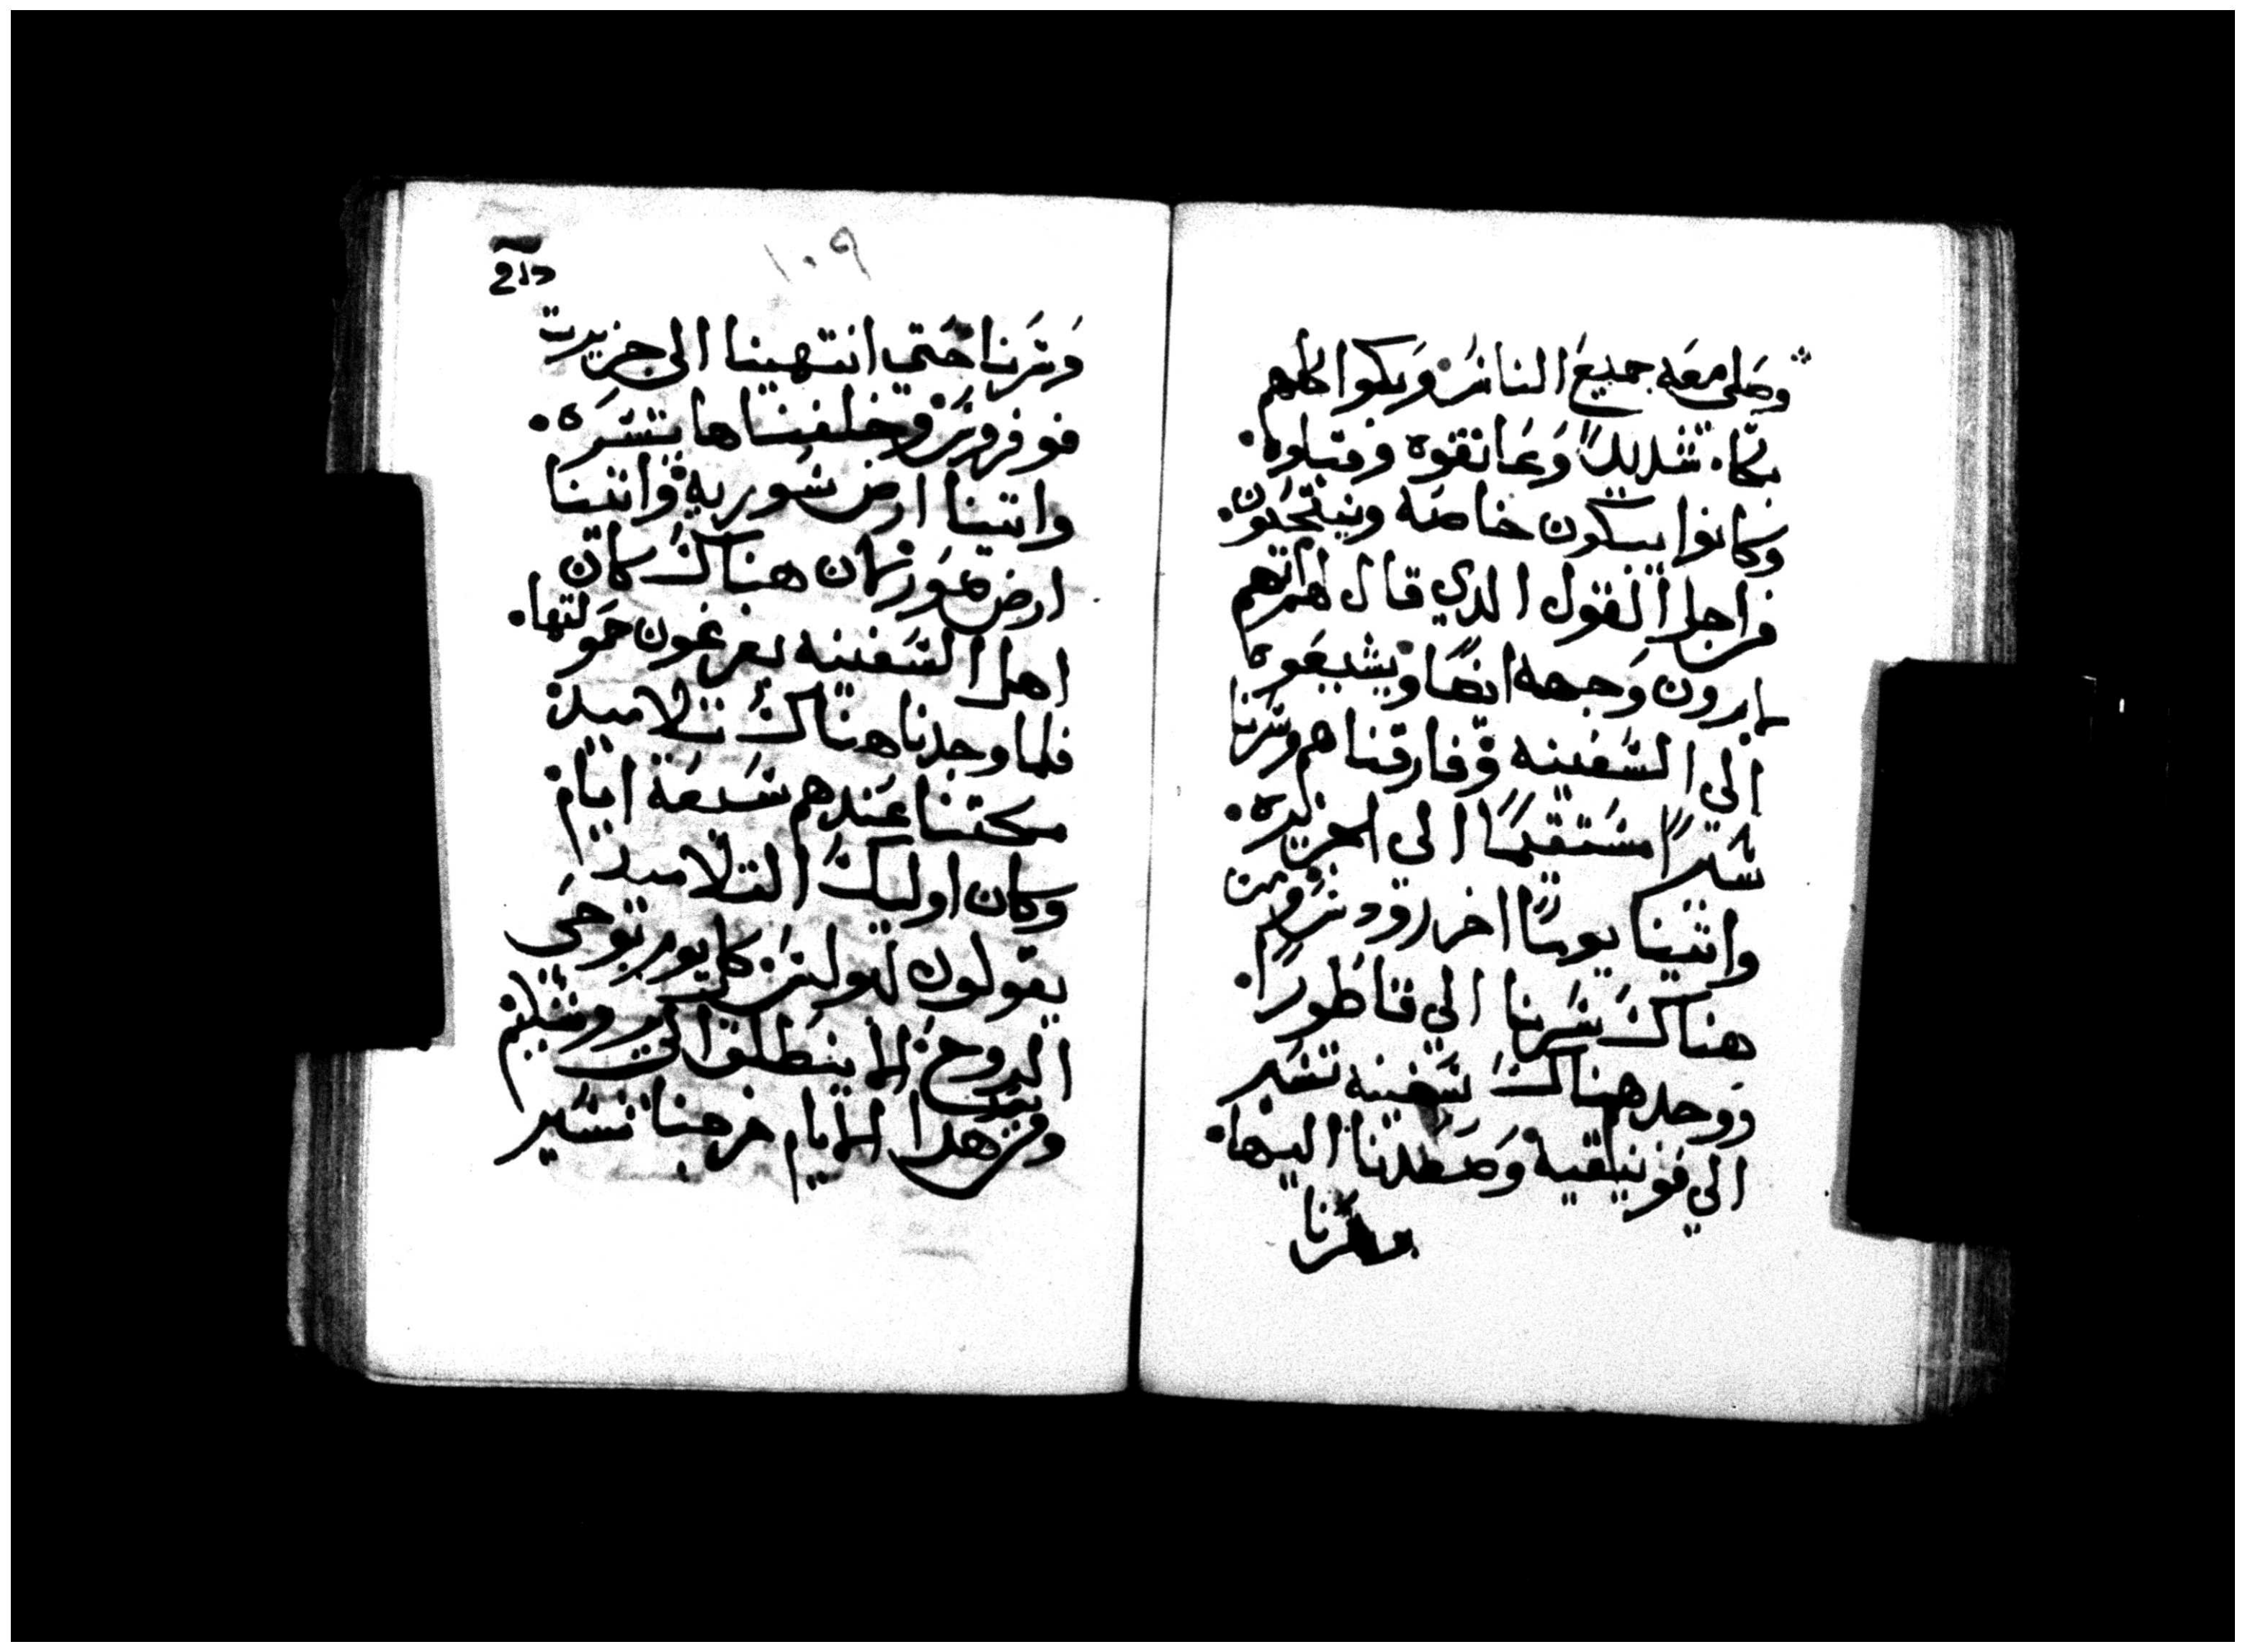 وصلي معه جميع الناس وبكوا كلهم
بكاء شديدًا وعانقوه وقبلوه.
وكانوا يبكون خاصه وينتحبون.
من اجل القول الدي قال لهم انهم
لا يرون وجهه ايضًا ويشيعوه
الي السفينه وفارقناهم وسرنا
سيرًا مستقيمًا الي اجزيره.
واتينا يومًا اخر رودس ومن
هناك سرنا الي فاطورا.
ووجد هناك سفينه تسير
الي فونيقيه وصعدنا اليها.
وسرنا
١٠٩
وسرنا حتي انتهينا الي جزيرت
قوفروس وخلفناها يسره.
واتينا ارض سوريه واتينا
ارض صور كان هناك كان
اهل السفينه يفرغون حمولتها.
فلما وجدنا هناك تلاميد
مكتنا عندهم سبعة ايام
وكان اوليك التلاميد
يقولون لبولس كل يوم بوحي
الروح لا ينطلق الي يروشليم
ومن بعد هدا الايام خرجنا نسير